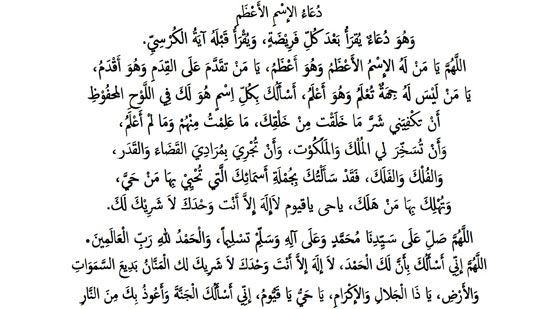 دُعَاءُ الإِسْمِ الأَعْظَمِ
وَهُوَ دُعَاءٌ يُقرَأُ بَعْدَ كُلِّ فَرِيْضَةٍ، وَيُقْرَأُ قَبْلَهُ آيَةُ الْكُرْسِيِّ.
اللَّهُمَّ يَا مَنْ لَهُ الإِسْمُ الأَعْظَمُ وَهُوَ أَعْظَمُ، يَا مَنْ تَقَدَّمَ عَلَى القِدَمِ وَهُوَ أَقْدَمُ،
يَا مَنْ لَيْسَ لَهُ جِهَةٌ تُعْلَمُ وَهُوَ أَعْلَمُ، أَسْأَلُكَ بِكُلِّ اِسْمٍ هُوَ لَكَ فِي اللَّوْحِ المحْفُوْظِ
أَنْ تَكْفِيَنِي شَرَّ مَا خَلَقْتَ مِنْ خَلْقِكَ، مَا عَلِمْتُ مِنْهُمْ وَمَا لَمْ أَعْلَمُ،
وَأَنْ تُسَخِّرَ لِي الْمُلْكَ وَالْمَلَكُوْت، وَأَنْ تُجْرِيَ بِمُرَادِيَ القَضَاءَ وَالقَدَر،
وَالفُلْكَ وَالفَلَكَ، فَقَدْ سَأَلْتُكَ بِجُمْلَةِ أَسْمَائِكَ الَّتِي تُحْيِيْ بِهَا مَنْ حَيَّ،
وَتُهْلِكَ بِهَا مَنْ هَلَكَ، ياحى ياقيوم لاَإِلَهَ إِلاَّ أَنْتَ وَحْدَكَ لاَ شَرِيْكَ لَكَ.
اللَّهُمَّ صَلِّ عَلَى سَيِّدِنَا مُحَمَّدٍ وَعَلَى آلِهِ وَسَلِّمْ تَسْلِيْماً، وَالْحَمْدُ للهِ رَبِّ الْعَالَمِيْنَ.
اللَّهُمَّ إِنِّي أَسْأَلُكَ بِأَنَّ لَكَ الْحَمْدَ، لاَ إِلَهَ إِلاَّ أَنْتَ وَحْدَكَ لاَ شَرِيكَ لك الْمَنَّانُ بَدِيعَ السَّمَوَاتِ
وَالأَرْضِ، يَا ذَا الْجَلاَلِ وَالإِكْرَامِ، يَا حَيُّ يَا قَيُّومُ، إِنِّي أَسْأَلُكَ الْجَنَّةَ وَأَعُوذُ بِكَ مِنَ النَّارِ